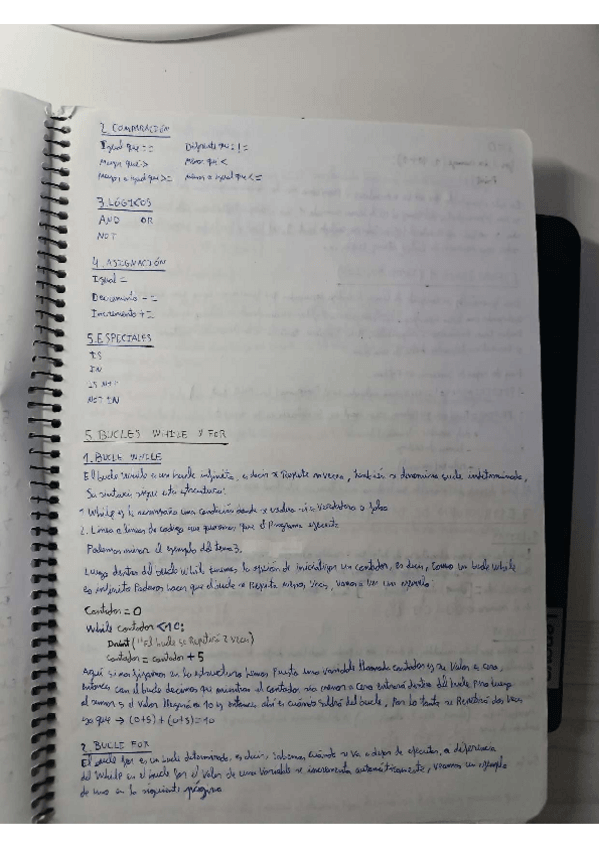 2. COMPARACIÓN
Igual que == Diferente que !=
Mayor que > Menor que <
Mayor o igual que >= Menor o igual que <=
3. LÓGICOS
AND OR
NOT
4. ASIGNACIÓN
Igual =
Decremento -=
Incremento +=
5. ESPECIALES
IS
IN
IS NOT
NOT IN
5. BUCLES WHILE Y FOR
1. BUCLE WHILE
El bucle while es un bucle infinito, es decir se Repite n veces, también se denomina bucle indeterminado,
Su sintaxis sigue esta estructura:
While es la una condición donde se evalua si es Verdadera o falsa
2. Linea o lineas de codigo que queramos que el Programa ejecute
Podemos mirar el ejemplo del tema 3.
Luego dentro del bucle while tenemos la opción de inicializar un contador, es decir, como un bucle while
es indefinito Podemos hacer que el bucle se Repita menos veces, vamos a ver un ejemplo:
Contador = 0
While contador < 10:
Print ("El bucle se Repetirá 2 veces)
contador = contador + 5
Aquí si nos fijamos en la estructura hemos Puesto una variable llamada contador y su Valor a cero,
entonces con el bucle decimos que mientras el contador sea menor a Cero entrará dentro del bucle, Pero luego
al sumar 5 el valor llegará a 10 y entonces ahí es cuándo saldrá del bucle, Por lo tanto se Repetirá dos Veces
ya que → (0+5) + (0+5) = 10
2. BUCLE FOR
El bucle for es un bucle determinado, es decir, sabemos cuándo se va a dejar de ejecutar, a diferencia
del While en el bucle for el valor de una variable se incrementa automáticamente, veamos un ejemplo
de uno en la siguiente página